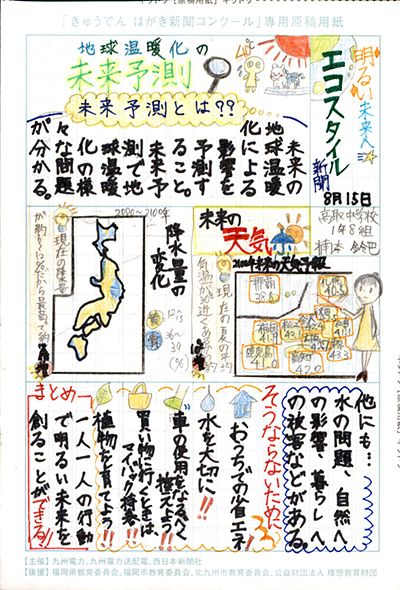 「きゅうでん はがき新聞コンクール」専用原稿用紙
明るい未来へ
エコスタイル
新聞
8月15日
高取中学校
1年8組
地球温暖化の
未来予測
未来予測とは??
未来の
地球温暖
化による
影響を
予測す
ること。
未来予
測で地
球温暖
化の様
々な問題
が分かる。
未来の
天気
2100年未来の天気予報
那覇
38.5
福岡
41.9
鹿児島
41.0
高知
42.0
43.3
現在の夏の平均
気温が30近くあるので
降水量の
変化
現在の降雪
他にも…
水の問題、自然へ
の影響、暮らしへ
の被害などがある。
そうならないために
おうちでの省エネ!
水を大切に!!
車の使用をなるべく
控えよう!!
買い物に行くときは、
マイバック持参!
植物を育てよう!!
まとめ
一人一人の行動
で明るい未来を
創ることができる!!
【主催】九州電力、九州電力送配電、西日本新聞社
【後援】福岡県教育委員会、福岡市教育委員会、北九州市教育委員会、公益財団法人 理想教育財団